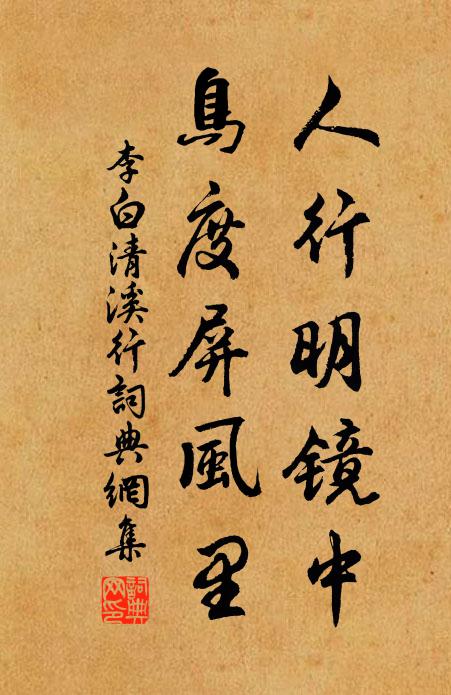 人行明镜中
鳥度屏風里
李白清溪行詞典網集
詞典網印